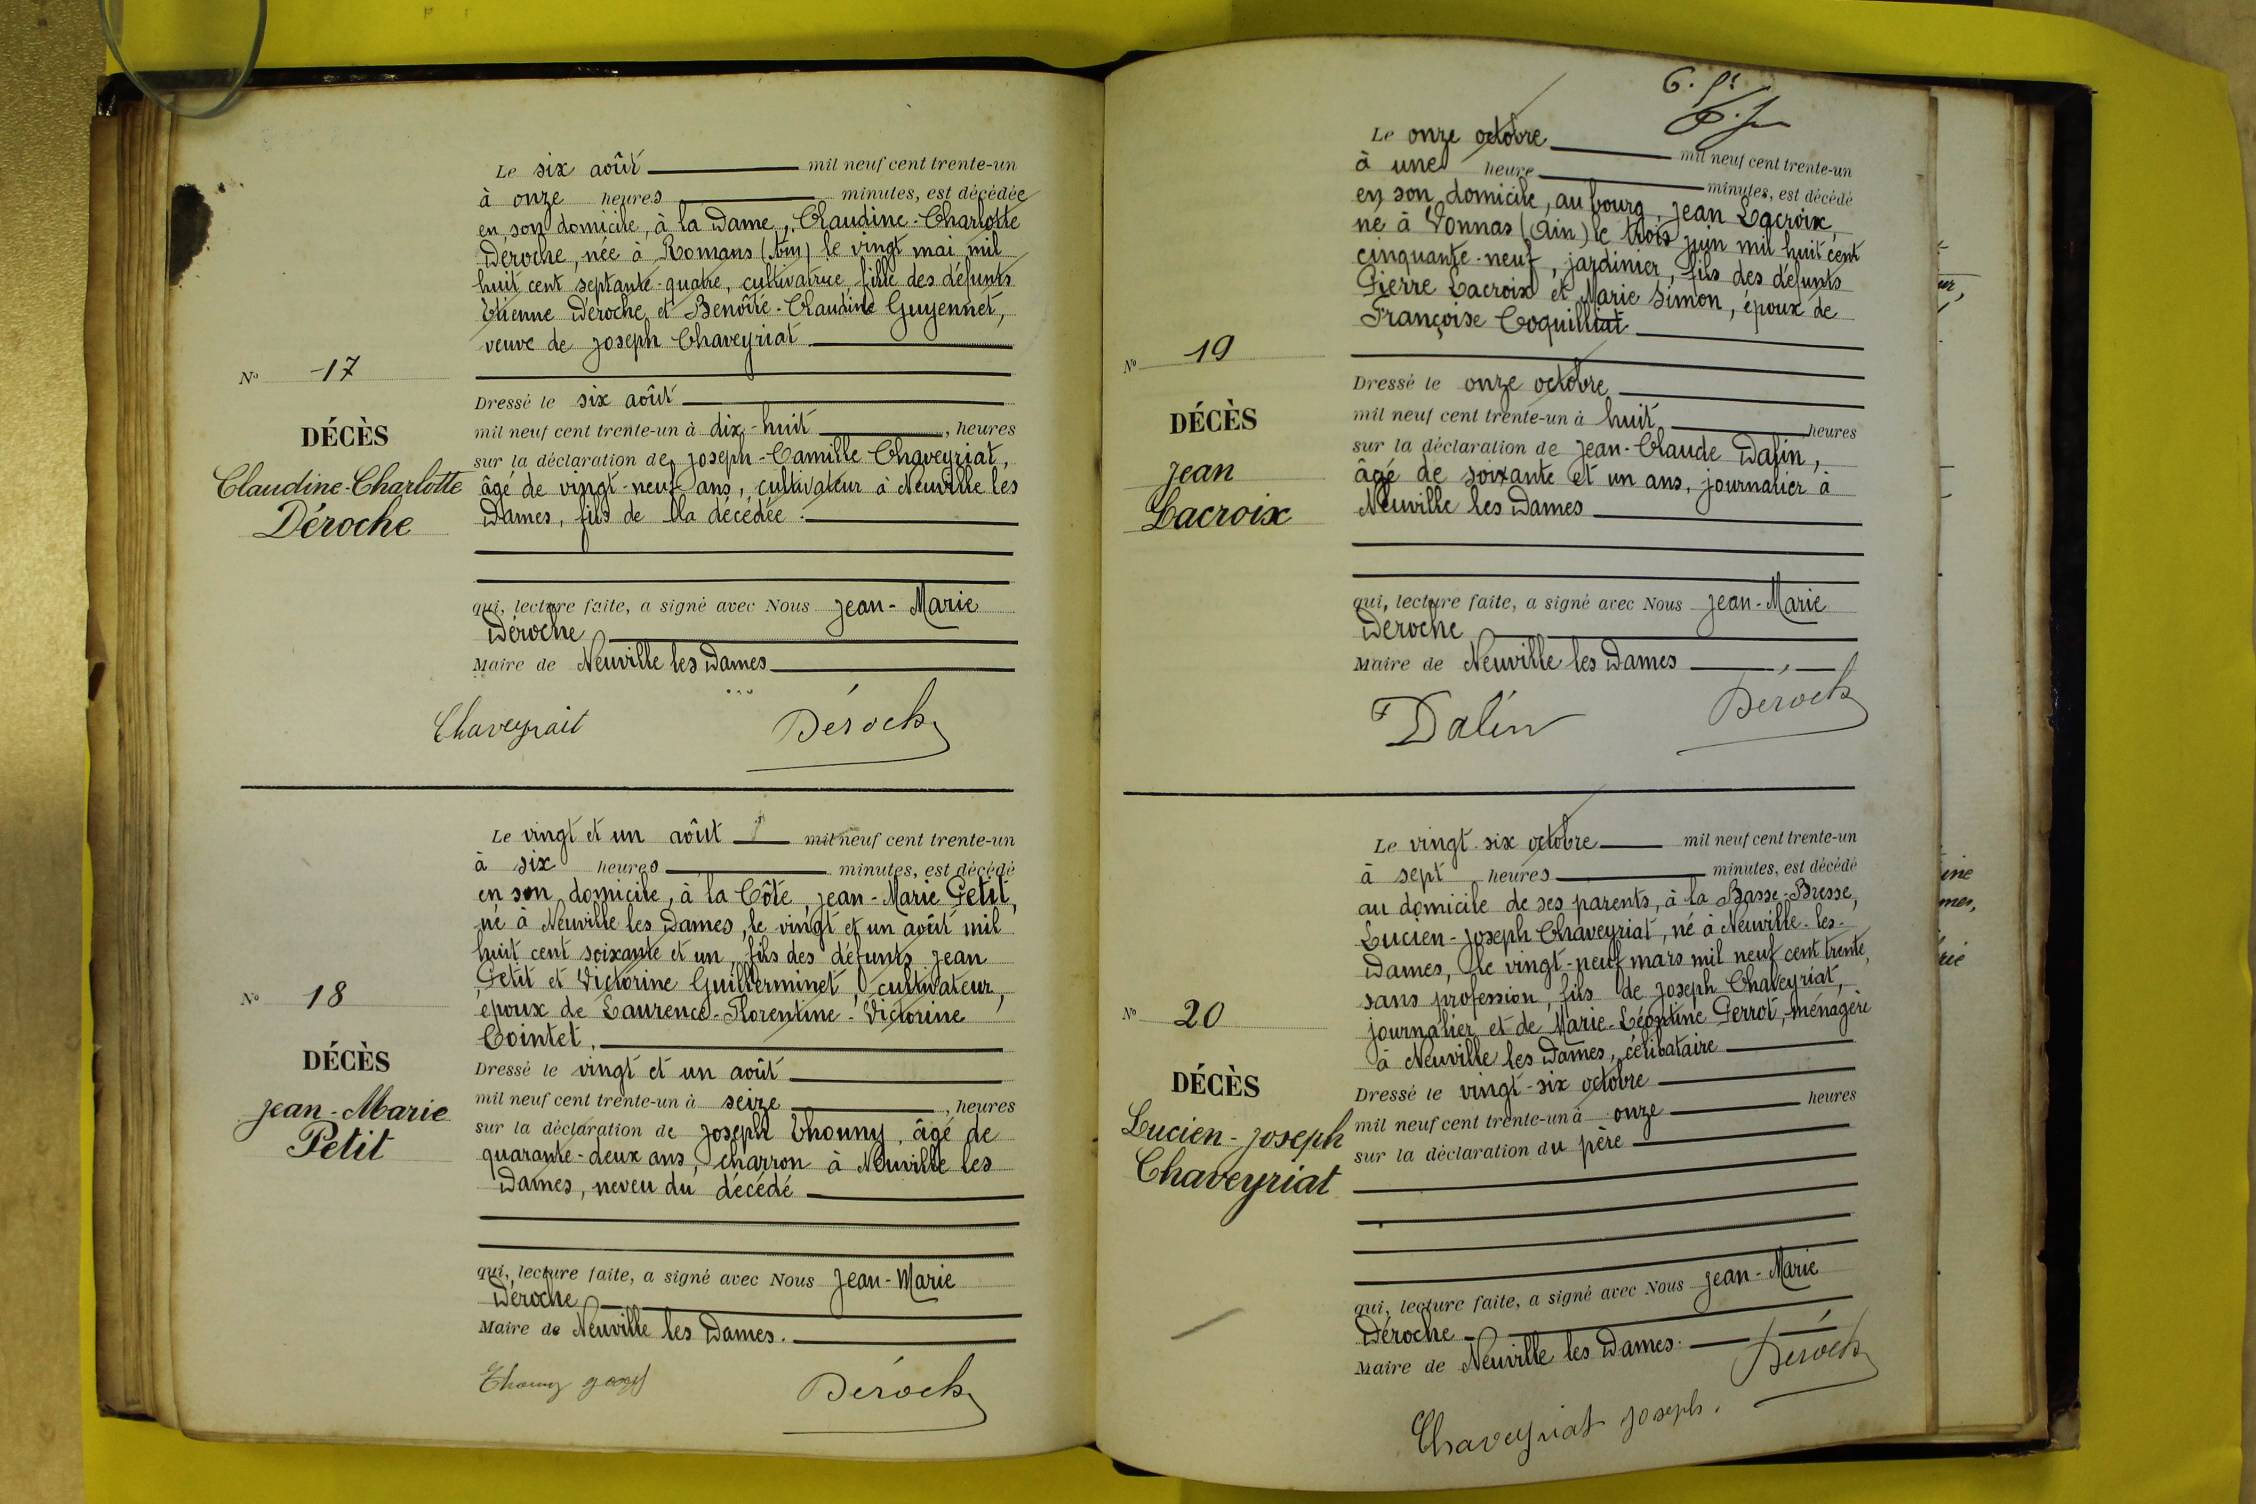 Le six août mil neuf cent trente-un
à onze heures minutes, est décédée
en son domicile, à la Dame, Claudine-Charlotte
Déroche, née à Romans (Ain) le vingt mai mil
huit cent septante-quatre, cultivatrice, fille des défunts
Etienne Déroche et Benoîte-Claudine Guyennet,
veuve de Joseph Chaveyriat
N° 17
Dressé le six août
DÉCÈS
mil neuf cent trente-un à dix-huit, heures
sur la déclaration de Joseph-Camille Chaveyriat,
Claudine-Charlotte
Déroche
âgé de vingt-neuf ans, cultivateur à Neuville les
Dames, fils de la décédée.
qui, lecture faite, a signé avec Nous Jean-Marie
Déroche
Maire de Neuville les Dames
Chaveyrait Déroche
Le vingt et un août mil neuf cent trente-un
à six heures minutes, est décédé
en son domicile, à la Côte, Jean-Marie Petit,
né à Neuville les Dames, le vingt et un août mil
huit cent soixante et un, fils des défunts Jean
Petit et Victorine Guillerminet, cultivateur,
N° 18
époux de Laurence-Florentine-Victorine
Cointet.
DÉCÈS
Dressé le vingt et un août
Jean-Marie
Petit
mil neuf cent trente-un à seize, heures
sur la déclaration de Joseph Thouny, âgé de
quarante-deux ans, charron à Neuville les
Dames, neveu du décédé
qui, lecture faite, a signé avec Nous Jean-Marie
Déroche
Maire de Neuville les Dames.
Déroche
Le onze octobre mil neuf cent trente-un
à une heure minutes, est décédé
en son domicile, au bourg, Jean Lacroix,
né à Vonnas (Ain) le trois juin mil huit cent
cinquante-neuf, jardinier, fils des défunts
Pierre Lacroix et Marie Simon, époux de
Françoise Coquilliat
N° 19
Dressé le onze octobre
DÉCÈS
mil neuf cent trente-un à huit heures
Jean
Lacroix
sur la déclaration de Jean-Claude Dalin,
âgé de soixante et un ans, journalier à
Neuville les Dames
qui, lecture faite, a signé avec Nous Jean-Marie
Déroche
Maire de Neuville les Dames
Dalin Déroche
Le vingt-six octobre mil neuf cent trente-un
à sept heures minutes, est décédé
au domicile de ses parents, à la Basse-Bresse,
Lucien-Joseph Chaveyriat, né à Neuville-les-
Dames, le vingt-neuf mars mil neuf cent trente,
sans profession, fils de Joseph Chaveyriat,
N° 20
journalier et de Marie-Léontine Perrot, ménagère
à Neuville les Dames, célibataire
DÉCÈS
Dressé le vingt-six octobre
Lucien-Joseph
Chaveyriat
mil neuf cent trente-un à onze heures
sur la déclaration du père
qui, lecture faite, a signé avec Nous Jean-Marie
Déroche
Maire de Neuville les Dames.
Déroche
Chaveyriat Joseph.